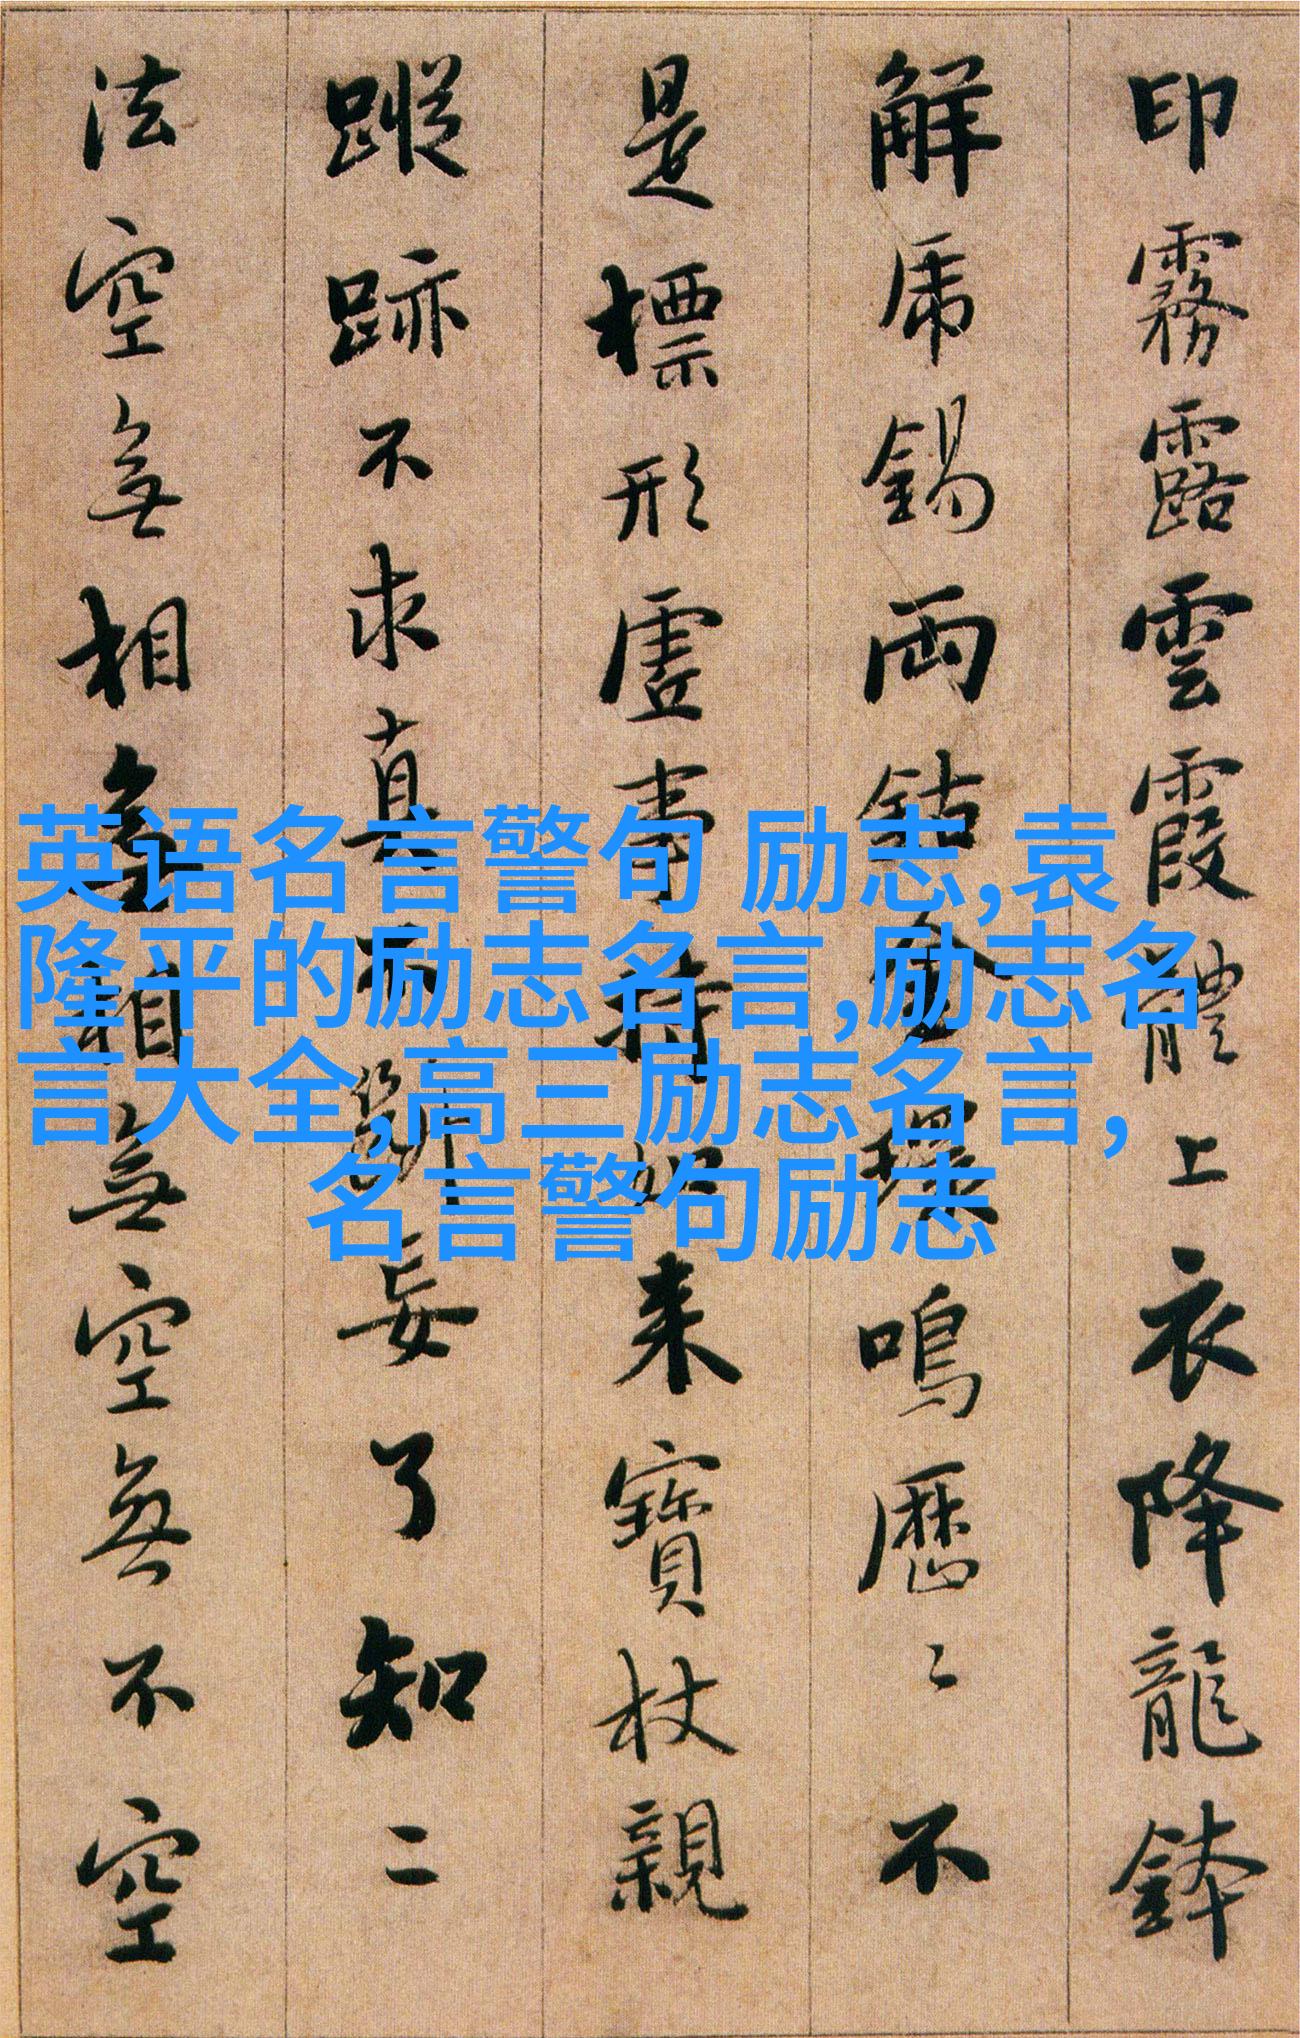 印霧露雲霞體上衣降龍鉢
解虎錫兩鈷金環鳴歷〻不
是標形虛事持如来寶杖親
蹤跡不求真不斷妄了知二
法空無相無相無空無不空
英语名言警句 励志,袁
隆平的励志名言,励志名
言大全,高三励志名言,
名言警句励志